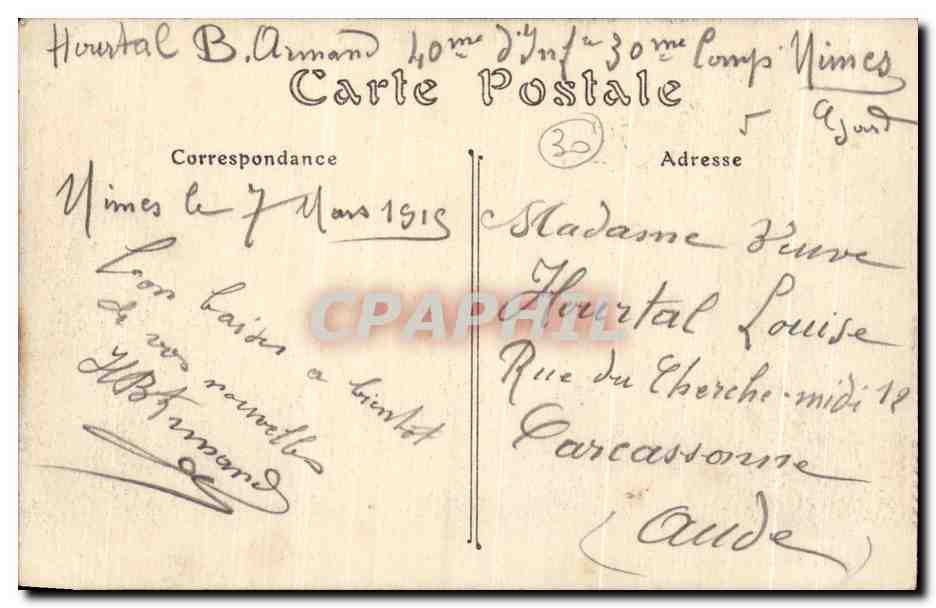 Hourtal B. Armand 40me d'Inf ie 30me Comp Nimes
5 Gard
Carte Postale
30
Correspondance
Adresse
Nimes le 7 Mars 1915
Bon baiser a bientot
de vos nouvelles
HB Armand
Madame Veuve
Hourtal Louise
Rue du Cherche-midi 12
Carcassonne
(Aude)
CPAPHIL